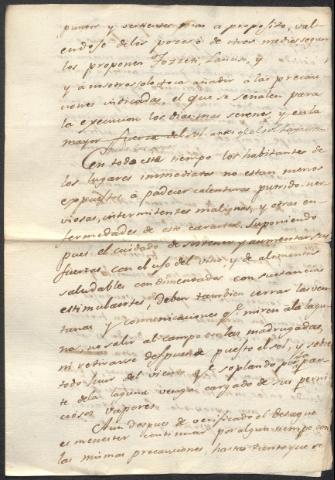 puntos y vertientes mas a proposito, val-
endose de los
los proponen
y a nosotros solo toca añadir a las precau-
ciones indicadas, el que se señalen para
la execucion los dias mas serenos, y en la
mayor fuerza del sol
En todo este tiempo los habitantes de
los lugares inmediatos no estan menos
expuestos à padecer calenturas putrido-ner-
viosas, intermitentes malignas, y otras en-
fermedades de este caracter. Suponiendo
pues el cuidado de sostener y aumentar sus
fuerzas con el uso del vino, y de alimentos
saludables condimentados con sustancias
estimulantes, deben tambien cerrar las ven-
tanas y comunicaciones qe. miren a la lagu-
na, no salir al campo en las madrugadas,
ni retirarse despues de puesto el sol, y sobre
todo huir del viento qe. soplando por la par-
te de la laguna venga cargado de sus perni-
ciosos vapores.
Aun despues de verificado el desague
es menester continuar por algun tiempo con
las mismas precauciones, hasta tanto que se